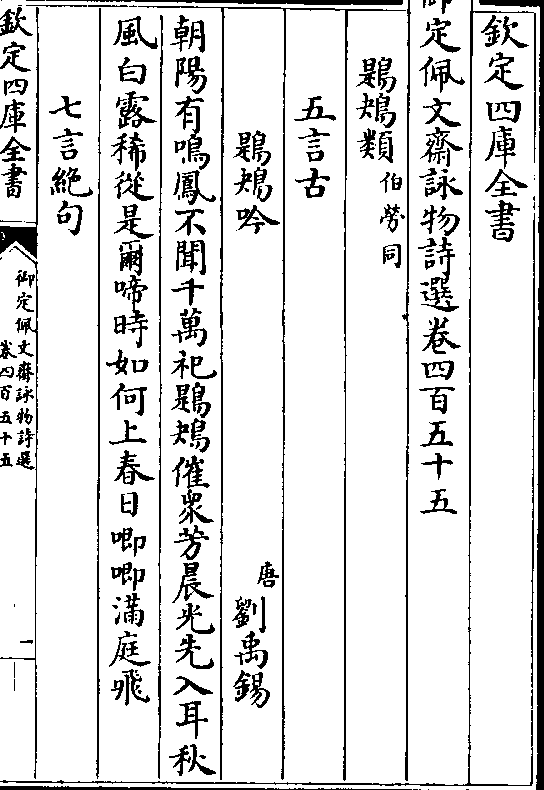 欽定四庫全書
御定佩文齋詠物詩選卷四百五十五
鶗鴂類伯勞同
五言古
鶗鴂吟 唐劉禹錫
朝陽有鳴鳳不聞千萬祀鶗鴂催衆芳晨光先入耳秋
風白露稀從是爾啼時如何上春日唧唧滿庭飛
七言絶句
欽定四庫全書
御定佩文齋詠物詩選
卷四百五十五
一